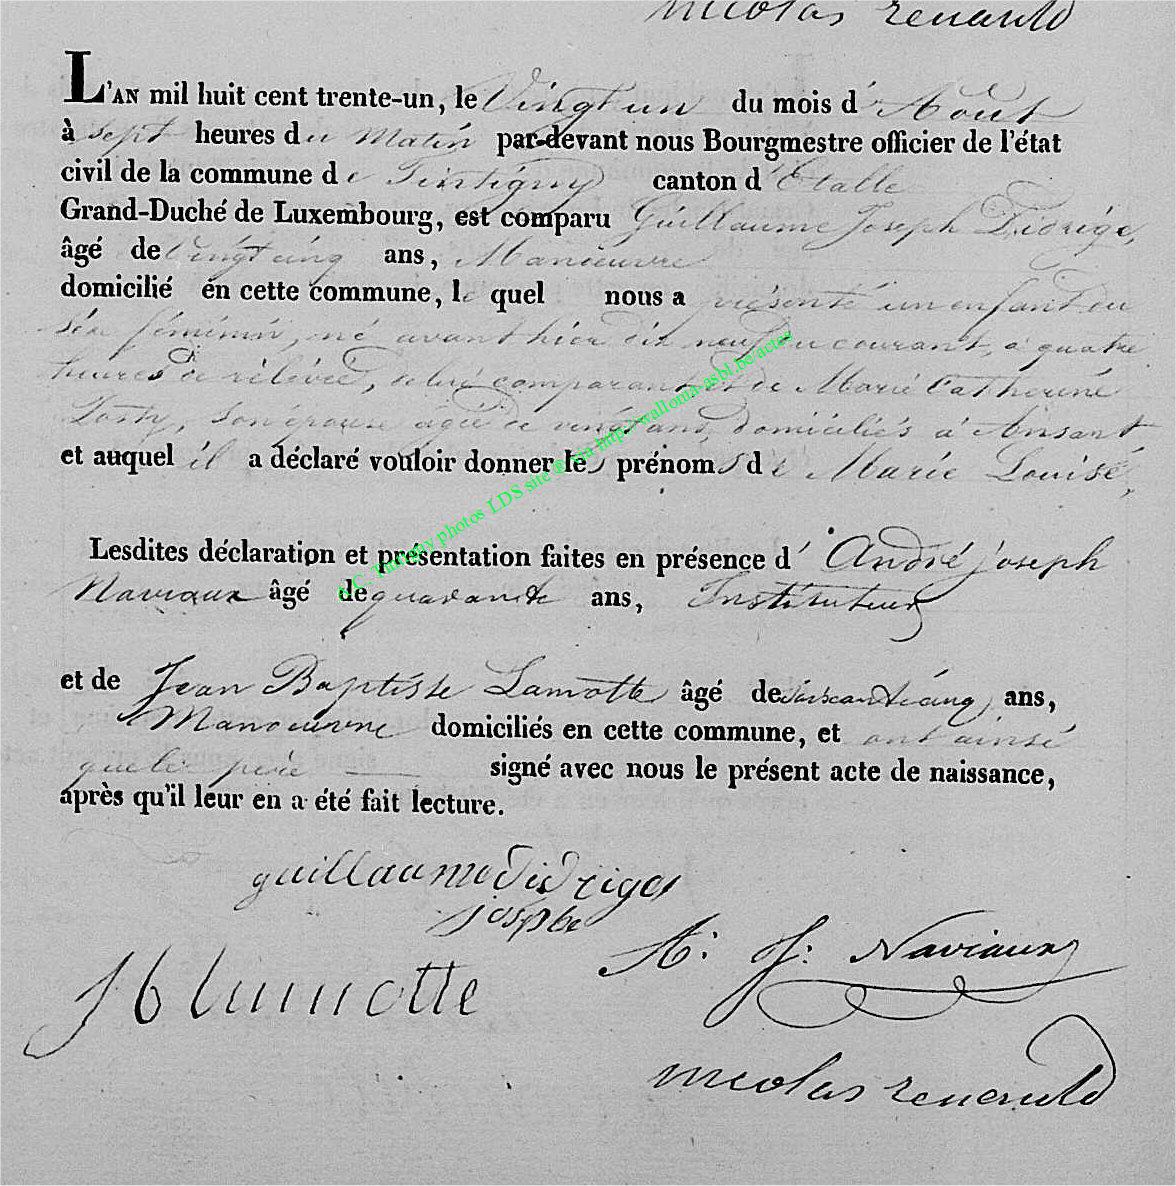 nicolas renauld
L'AN mil huit cent trente-un, le Vingt un du mois d'Aout
à sept heures du Matin par-devant nous Bourgmestre officier de l'état
civil de la commune de Tintigny canton d'Etalle
Grand-Duché de Luxembourg, est comparu Guillaume Joseph Didrige,
âgé de vingt cinq ans, Manoeuvre
domicilié en cette commune, le quel nous a présenté un enfant du
séxe féminin, né avant hier dix neuf du courant, à quatre
heures de rélévée, de lui comparant et de Marie Catherine
son épouse agée de vingt ans, domiciliés à Ansart
et auquel il a déclaré vouloir donner les prénoms de Marie Louise,
Lesdites déclaration et présentation faites en présence d'André joseph
Naviaux âgé de quarante ans, Instituteur
et de Jean Baptiste Lamotte âgé de soixante cinq ans,
Manoeuvre domiciliés en cette commune, et ont ainsi
que le père signé avec nous le présent acte de naissance,
après qu'il leur en a été fait lecture.
guillaume didriges
josphe
A. J. Naviaux
J b lamotte
nicolas renauld
A.C. Tintigny photos LDS site via http://walloma-asbl.be/actes